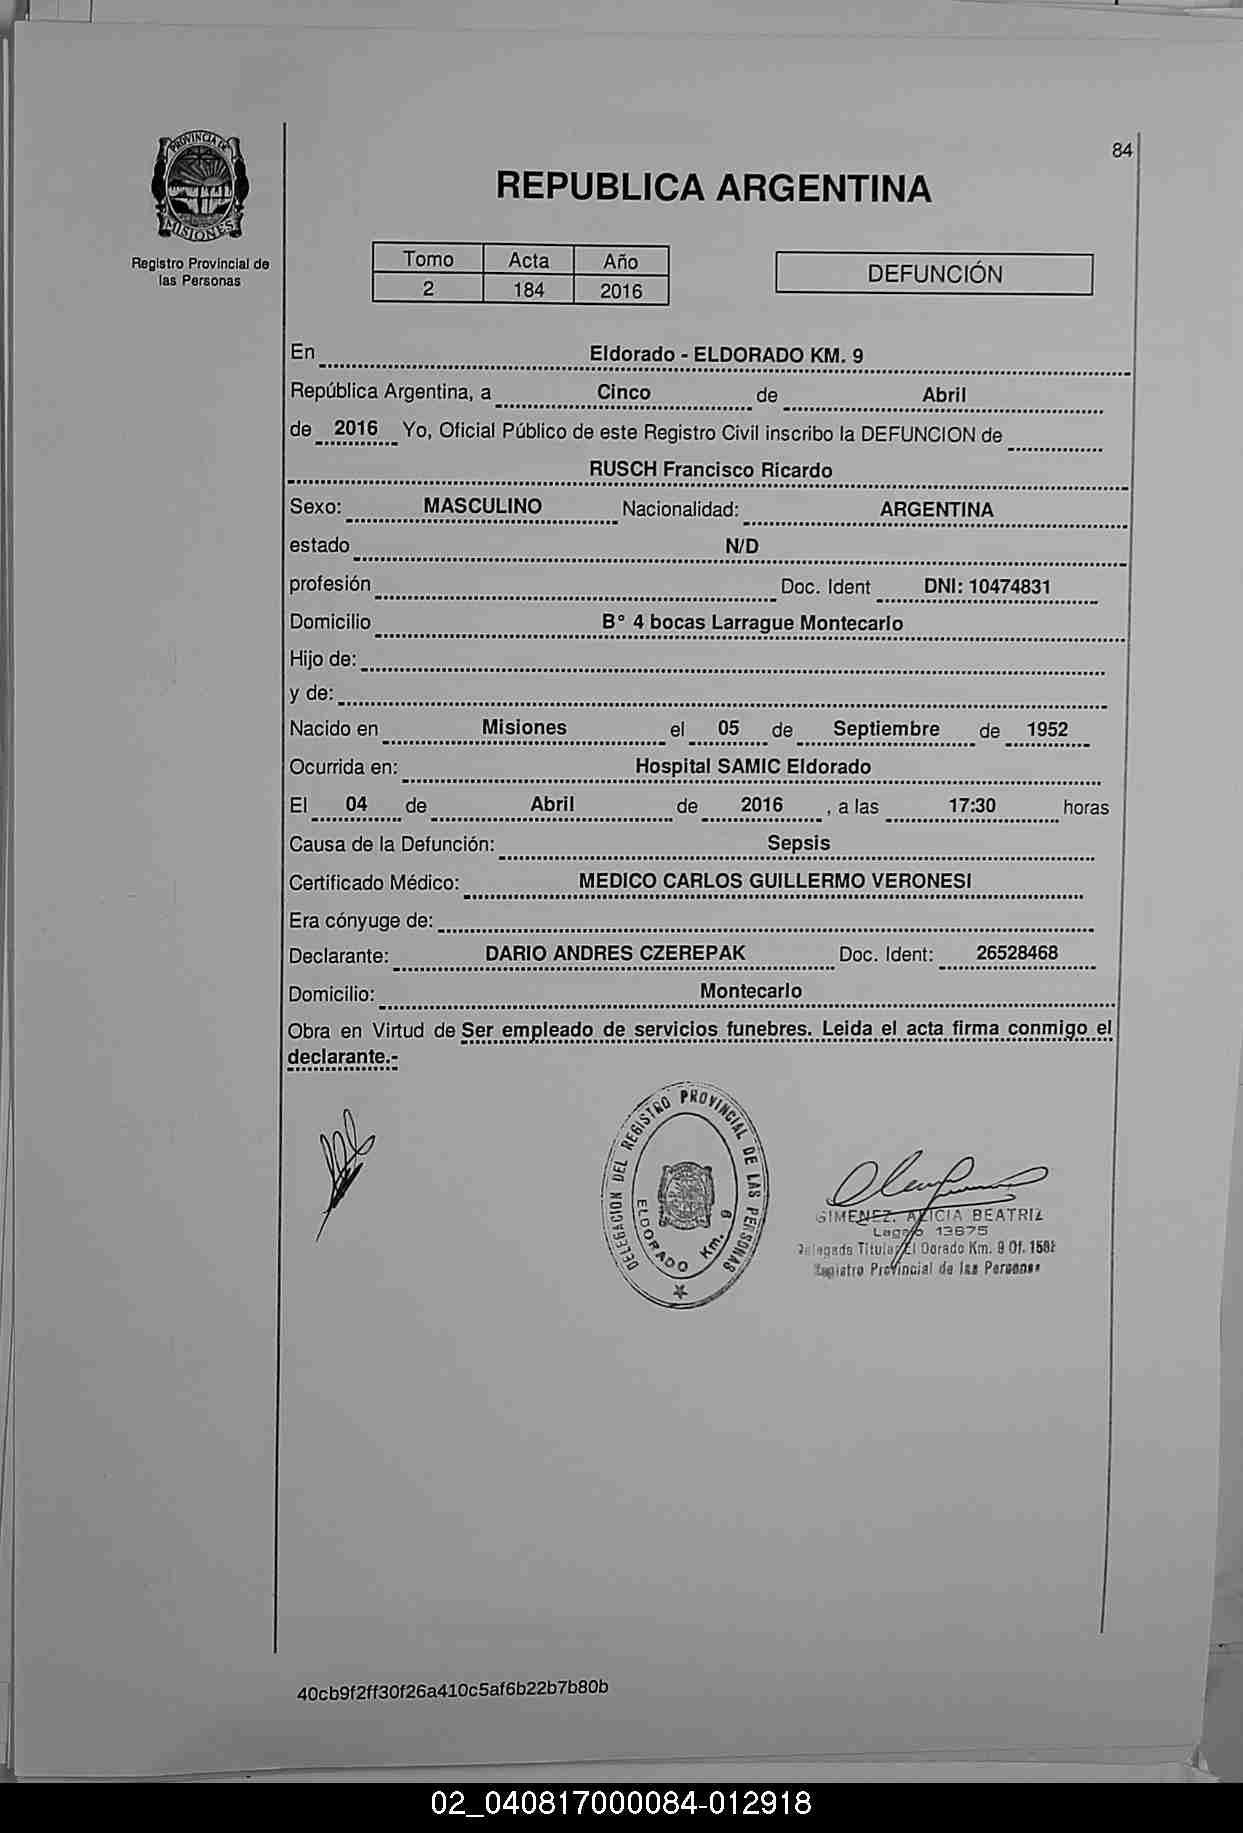 84
PROVINCIA DE
MISIONES
Registro Provincial de
las Personas
REPUBLICA ARGENTINA
Tomo Acta Año
2 184 2016
DEFUNCIÓN
En Eldorado - ELDORADO KM. 9
República Argentina, a Cinco de Abril
de 2016 Yo, Oficial Público de este Registro Civil inscribo la DEFUNCION de
RUSCH Francisco Ricardo
Sexo: MASCULINO Nacionalidad: ARGENTINA
estado N/D
profesión Doc. Ident DNI: 10474831
Domicilio B° 4 bocas Larrague Montecarlo
Hijo de:
y de:
Nacido en Misiones el 05 de Septiembre de 1952
Ocurrida en: Hospital SAMIC Eldorado
El 04 de Abril de 2016 , a las 17:30 horas
Causa de la Defunción: Sepsis
Certificado Médico: MEDICO CARLOS GUILLERMO VERONESI
Era cónyuge de:
Declarante: DARIO ANDRES CZEREPAK Doc. Ident: 26528468
Domicilio: Montecarlo
Obra en Virtud de Ser empleado de servicios funebres. Leida el acta firma conmigo el
declarante.-
DELEGACION DEL REGISTRO PROVINCIAL DE LAS PERSONAS
ELDORADO Km. 9
GIMENEZ, ALICIA BEATRIZ
Legajo 13675
Delegada Titular El Dorado Km. 9 Of. 1582
Registro Provincial de las Personas
40cb9f2ff30f26a410c5af6b22b7b80b
02_040817000084-012918